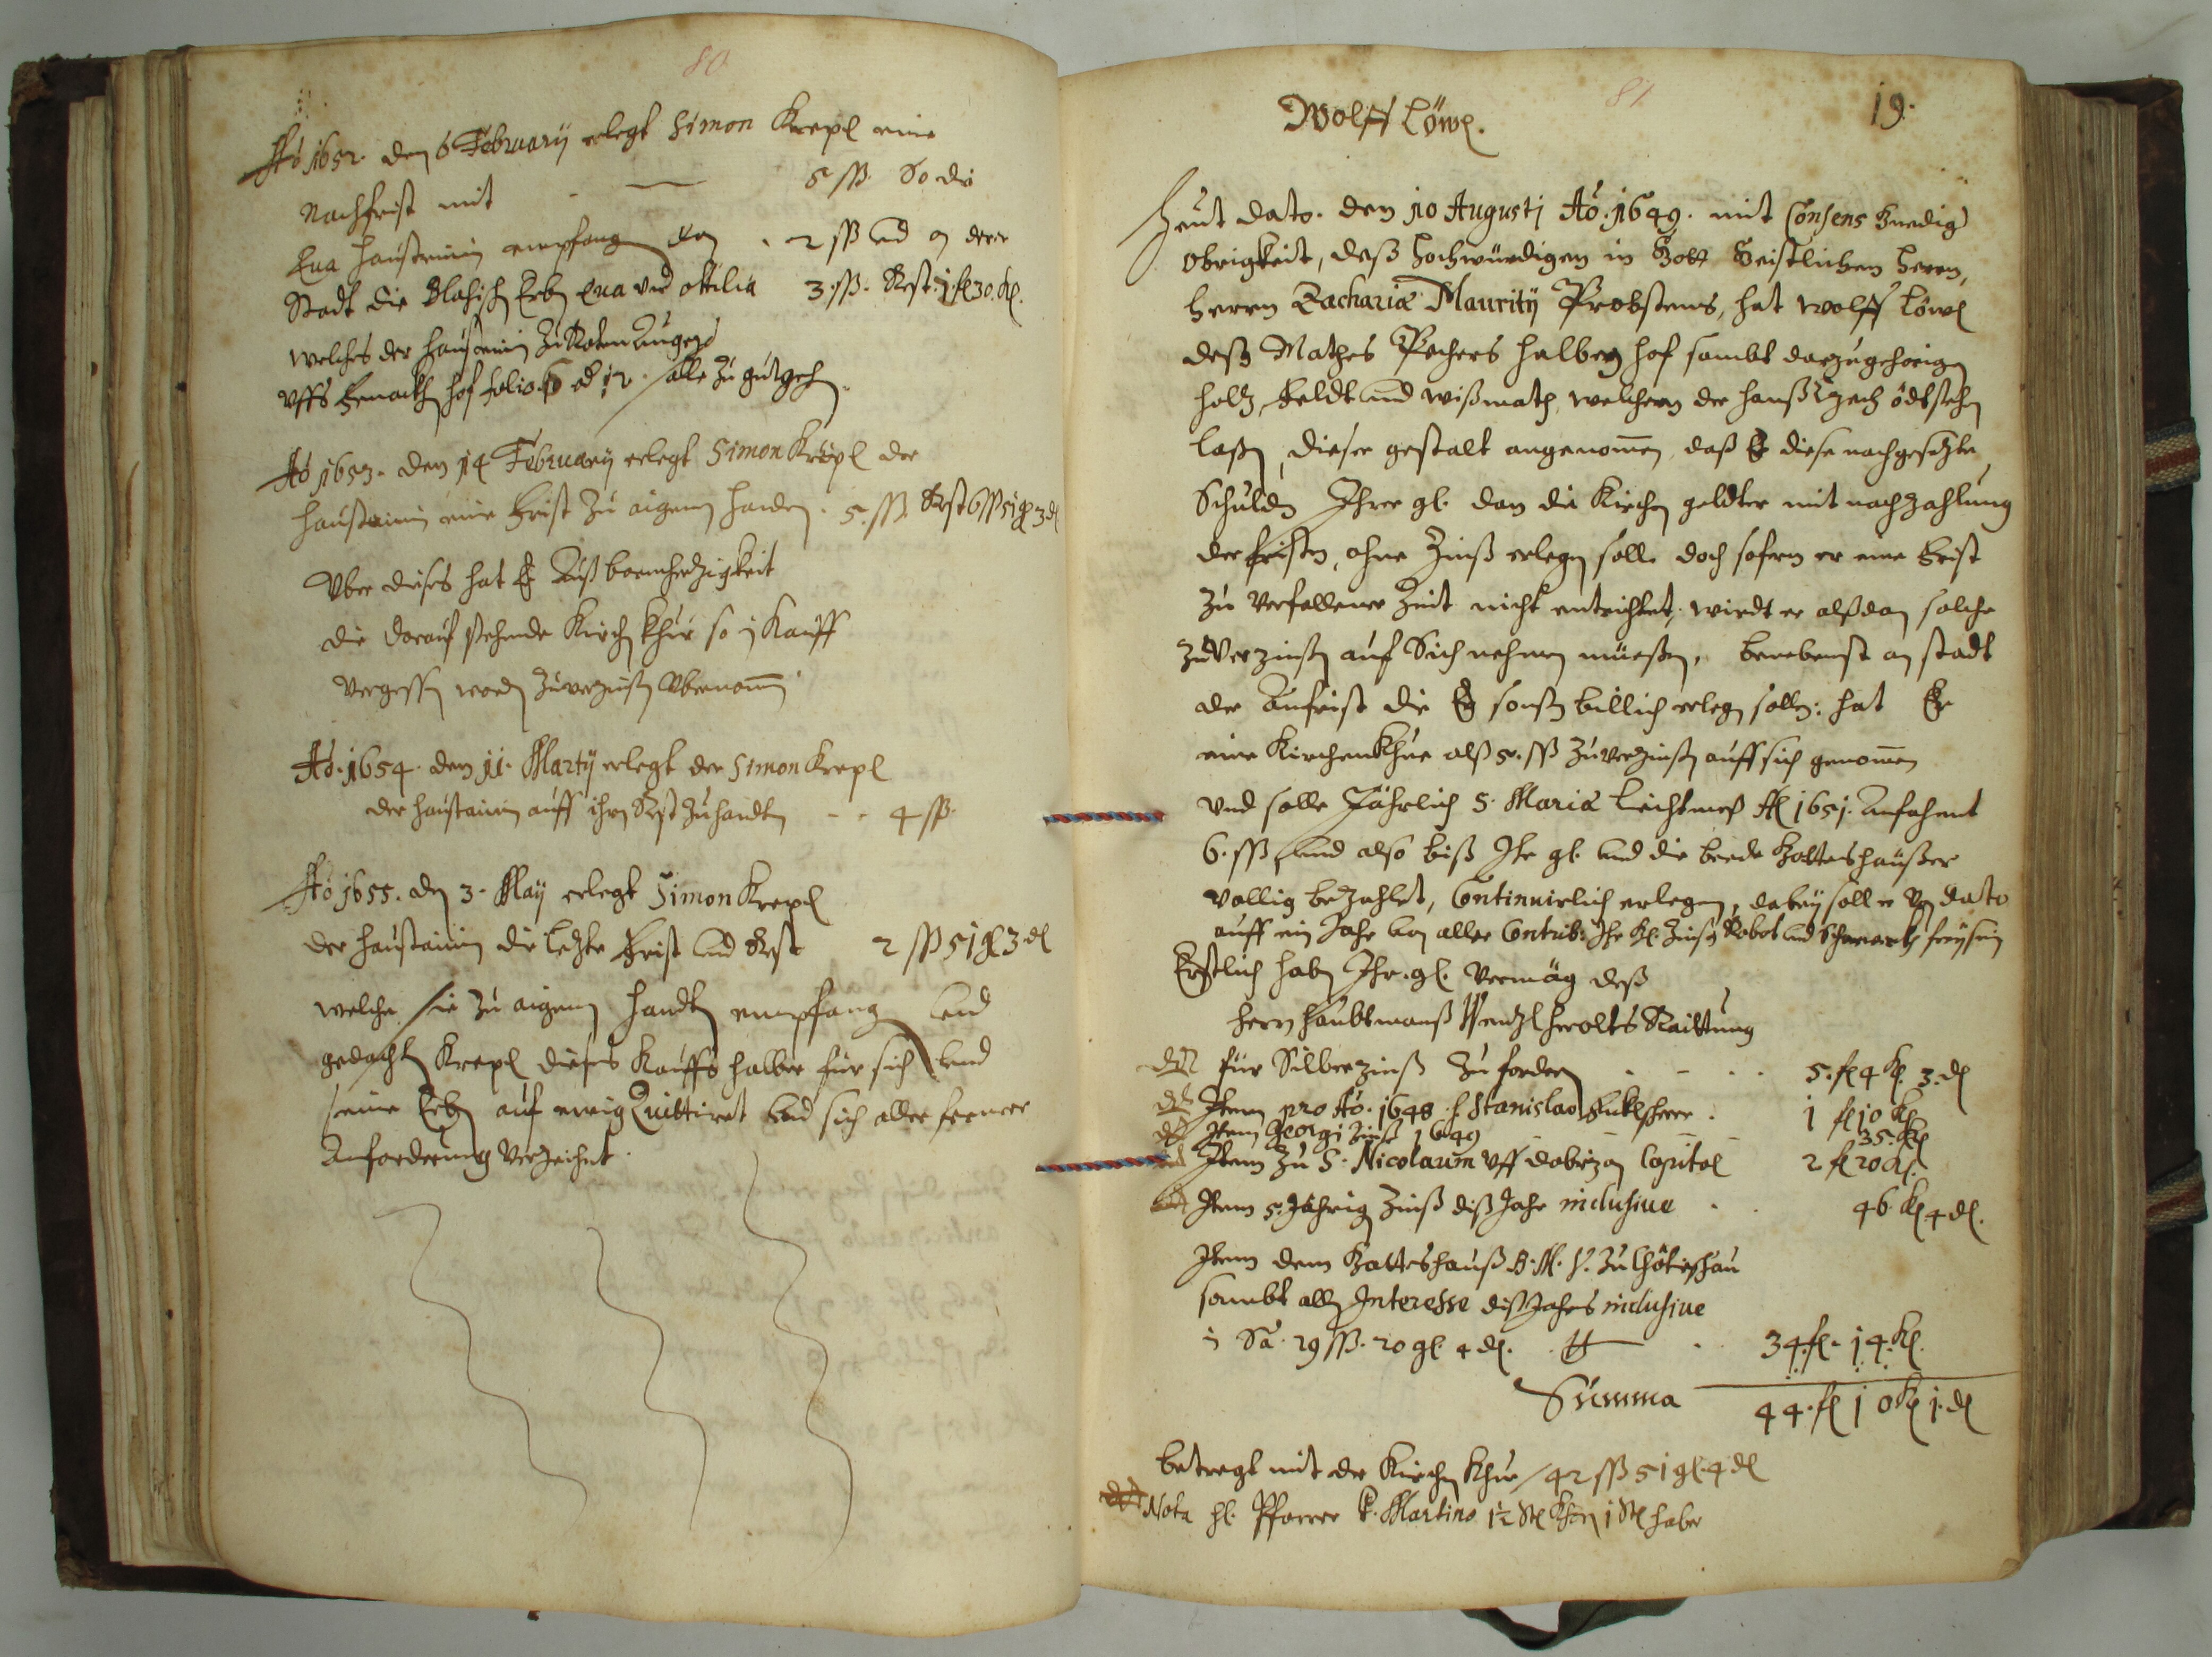 80
Aó 1652. den 6 February erlegt Simon Krepl eine
Nachfrist mit — 5 ßß. So die
Eua Haustainin empfangen den 2 ßß und an derer
Stadt die Blasisch Erben Eua und Ottilia 3. ßß. Rest. 1 fl 30. kl.
welches der Haustainin zu
uffs hof folio 6 12. alls zu gut
Aó 1653. den 14 February erlegt Simon Kröpl der
Haustainin eine Frist zu aignen Handen. 5. ßß. Rest 6 ßß 51 gl 3 dl
Uber dieses hat Er Auß barmhertzigkeit
die darauf stehende Kirchen Khue so in Kauff
vergessen worden zuverzinsen Ubernomen
Aó. 1654. den 11. Marty erlegt der Simon Krepl
der Haustainin auff ihren Rest zuhandten - - 4 ßß.
Aó 1655. den 3. May erlegt Simon Krepl
der Haustainin die letzte Frist und Rest 2 ßß 51 gl 3 dl
welche sie zu aignen Handten empfangen und
gedachten Krepl dieses Kauffs halber für sich und
seine Erben auf ewig Quittiret und sich aller ferner
Anforderung verzeichnet.
81
19.
Wolff Löwl.
Heut dato. den 10 Augusti Aó. 1649. mit Consens Gnediger
Obrigkeit, deß Hochwürdigen in Gott Geistlichen Herrn,
Herrn Zachariæ Maurity Probstens, hat Wolff Löwl
deß Mathes Pechers halben Hof sambt darzugehörigen
Holtz, Feldt und Wißmath, welchern der Hanß Zech ödt stehen
laßen, dieser gestalt angenomen, daß Er diese nachgesetzte
Schulden Ihrer gl. dan die Kirchen geldter mit nachzahlung
der fristen, ohne Zinß erlegen solle doch sofern er eine Frist
zu verfallener Zeit nicht entrichtet, wirdt er alßdan solche
zu verzinsen auf Sich nehmen müeßen, benebenst an stadt
der Anfrist die Er sonsten billich erlegen sollen: hat Er
eine Kirchenkhue alß 5. ßß zu verzinsen auff sich genomen
Und solle Jährlich S. Mariæ Liechtmeß Aó 1651. Anfahent
6. ßß und also biß Ihr gl. und die beede Gotteshäußer
vollig bezahlet, Continuirlich erlegen, dabey soll er von dato
auff ein Jahr von aller Contrib: Ihr Zinsen Robot und Scharwerk frey sein
Erstlich haben Ihr. gl. Vermög deß
Herrn Haubtmanß Wentzl Herolts Raittung
für Silberzinß zu fordern - - - 5. fl 4 kl. 3. dl
Item pro Aó. 1648. S. Stanislao . 1 fl 10 kl
Item Georgi Zinß 1649 35. kl
Item zu S. Nicolaum uff Capital 2 fl 20 kl.
Item 5. Jährig Zinß diß Jahr inclusive . . 46 kl 4 dl.
Item dem Gotteshauß B. M. V. zu Chotieschau
sambt allen Interesse diß Jahrs inclusive
in Sa. 29 ßß. 20 gl. 4 dl. . 34. fl. 14. kl.
Summa 44. fl 10 kl 1. dl
betregt mit der Kirchen Khue 42 ßß 51 gl. 4 dl
Nota hl. Pfarrer P. Martino 1½ Khorn 1 haber